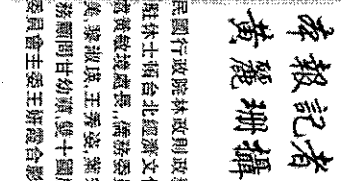 本報記者
黃麗珊攝
民國行政院林政則政
駐休士頓台北經濟文
處黃敏境處長,僑務委
美、黎淑瑛、王秀姿、葉
務顧問甘幼蘋,雙十國
委員會主委王妍霞合影